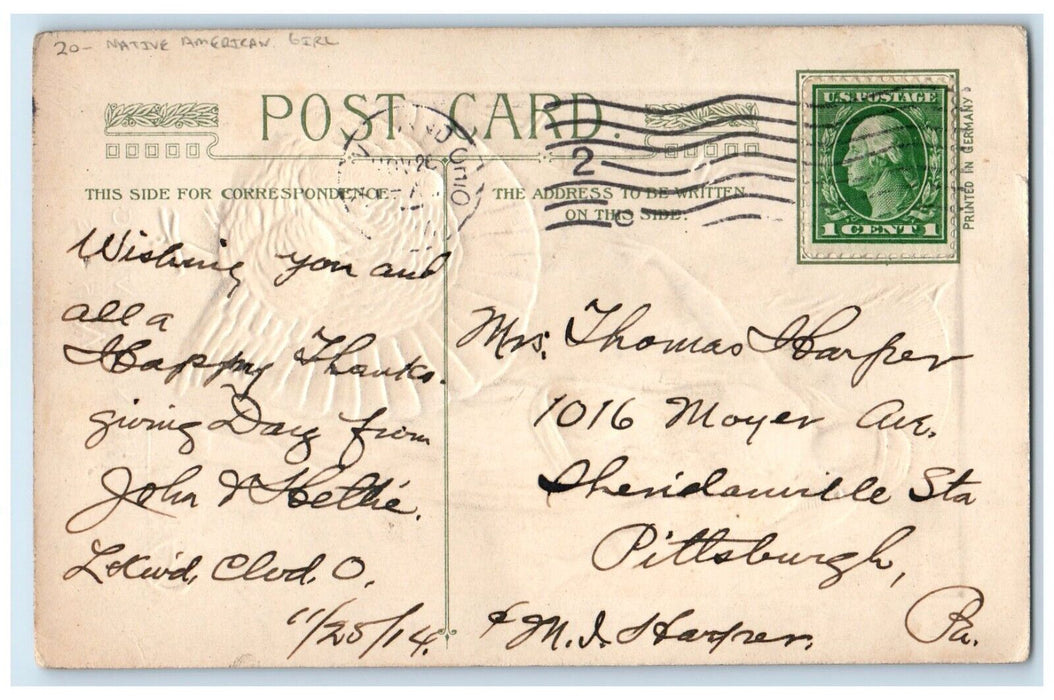 20- NATIVE AMERICAN GIRL
POST CARD.
THIS SIDE FOR CORRESPONDENCE.
THE ADDRESS TO BE WRITTEN
ON THIS SIDE.
U.S. POSTAGE
1 CENT 1
PRINTED IN GERMANY
OHIO
NOV 26
2
Wishing you and
all a
Happy Thanks-
giving Day from
John & Hettie.
Lkwd, Clvd. O.
11/25/14.
Mrs. Thomas Harper
1016 Moyer Ave.
Sheridanville Sta
Pittsburgh,
Pa.
& M. I. Harper.